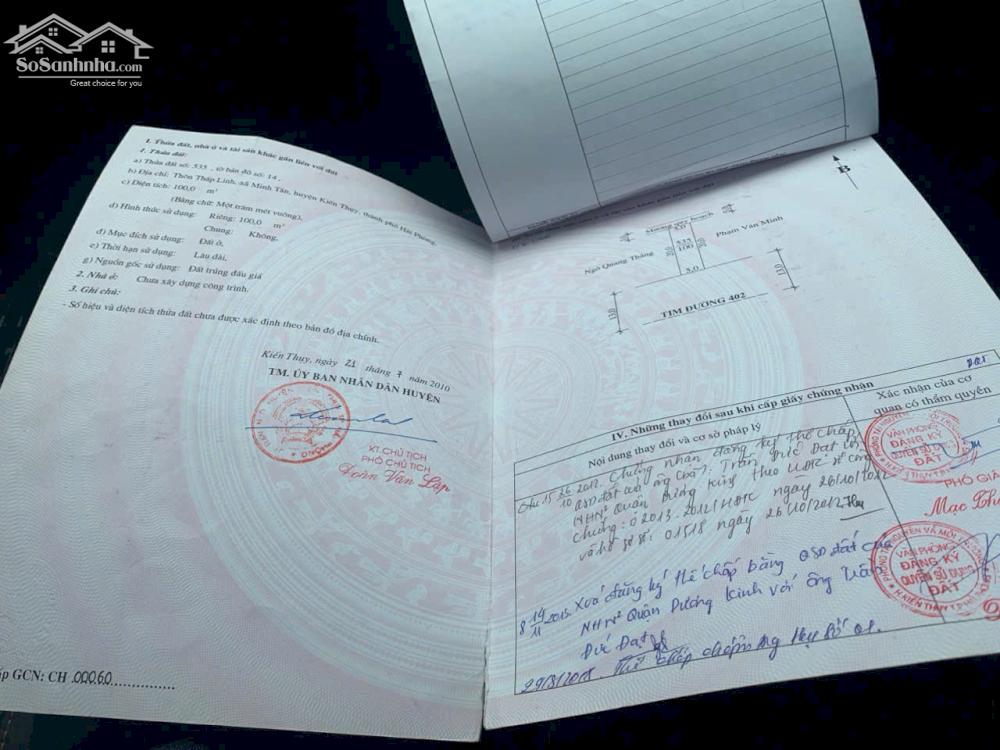 SoSanhnha.com
Great choice for you
1. Thửa đất, nhà ở và tài sản khác gắn liền với đất
1. Thửa đất:
a) Thửa đất số: 535 , tờ bản đồ số: 14 ,
b) Địa chỉ: Thôn Thấp Linh, xã Minh Tân, huyện Kiến Thụy, thành phố Hải Phòng.
c) Diện tích: 100,0 m²
(Bằng chữ: Một trăm mét vuông),
d) Hình thức sử dụng: Riêng: 100,0 m²
Chung: Không.
đ) Mục đích sử dụng: Đất ở,
e) Thời hạn sử dụng: Lâu dài.
g) Nguồn gốc sử dụng: Đất trúng đấu giá
2. Nhà ở: Chưa xây dựng công trình.
3. Ghi chú:
- Số hiệu và diện tích thửa đất chưa được xác định theo bản đồ địa chính.
Kiến Thụy, ngày 21 tháng 7 năm 2010
TM. ỦY BAN NHÂN DÂN HUYỆN
KT.CHỦ TỊCH
PHÓ CHỦ TỊCH
Đoàn Văn Lập
GCN: CH 00060
B
Mương quy hoạch
5,0
Ngô Quang Thắng
535
100
Phạm Văn Minh
5,0
TIM ĐƯỜNG 402
13,0
13,0
IV. Những thay đổi sau khi cấp giấy chứng nhận
Nội dung thay đổi và cơ sở pháp lý
Xác nhận của cơ quan có thẩm quyền
26/10 2012 Chứng nhận đăng ký thế chấp
QSD đất của ông Trần Đức Đạt
NHN² Quận Dương Kinh theo HĐTC số công
chứng: 02013.2012/HĐTC ngày 26/10/2012
và hồ sơ số: 01518 ngày 26/10/2012
19/11 2015 Xoá đăng ký thế chấp bằng QSD đất của
NHN² Quận Dương Kinh với ông Trần
Đức Đạt
29/8/2018. Thế chấp
VĂN PHÒNG
ĐĂNG KÝ
QUYỀN SỬ DỤNG
ĐẤT
PHÓ GIÁ
Mạc
VĂN PHÒNG
ĐĂNG KÝ
QUYỀN SỬ DỤNG
ĐẤT